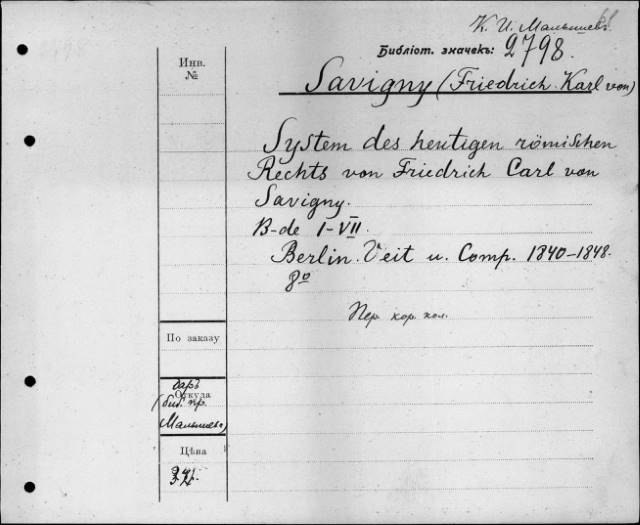 К. И. Малышевъ
68
Библіот. значекъ: 2798.
Инв.
№
Savigny (Friedrich Karl von)
System des heutigen römischen
Rechts von Friedrich Carl von
Savigny.
B-de I-VII.
Berlin. Veit u. Comp. 1840-1848.
8º
Пер. кор. кол.
По заказу
даръ
Откуда
(биб. пр.
Малышева)
Цѣна